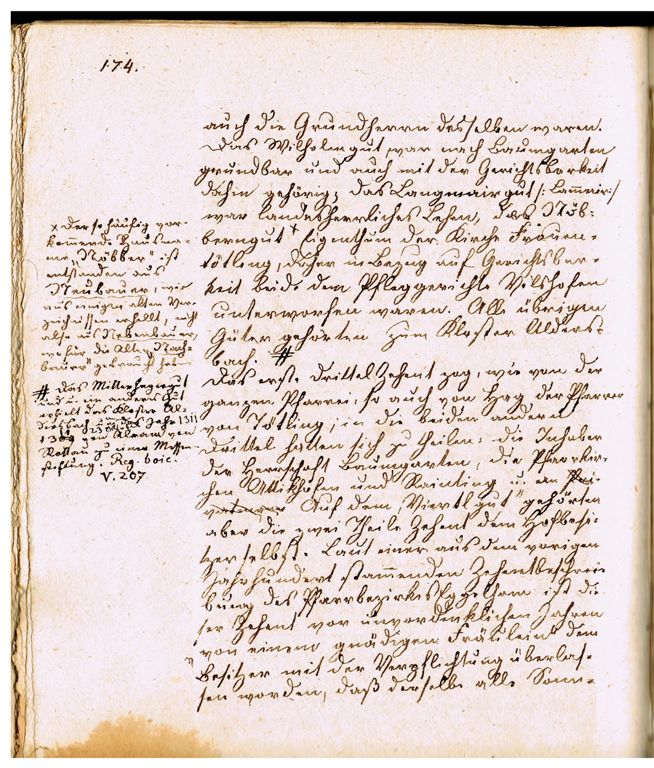 174.
auch die Grundherrn desselben waren.
Das Wilhelmgut war nach Baumgarten
grundbar und auch mit der Gerichtsbarkeit
dahin gehörig; das Langmairgut /: Lammair :/
war landesherrliches Lehen, das Nöb-
berngut × Eigenthum der Kirche Frauen-
tötling, daher in Bezug auf Gerichtsbar-
keit beide dem Pfleggerichte Vilshofen
unterworfen waren. Alle übrigen
Güter gehörten zum Kloster Alders-
bach. #
Das erste Drittel Zehent zog, wie von der
ganzen Pfarrei, so auch von Hag der Pfarrer
von Tötling; in die beiden andern
Drittel hatten sich zu theilen: die Inhaber
der Herrschaft Baumgarten, die Pfarrkir-
chen Attikhofen und Rainting u. an Pri-
Auf dem „Viertlgut" gehörten
aber die zwei Theile Zehent dem Hofbesi-
tzer selbst. Laut einer aus dem vorigen
Jahrhundert stammenden Zehentbeschrei-
bung des Pfarrbezirkes Egglham ist die-
ser Zehent vor unvordenklichen Jahren
von einem „gnädigen Fräulein" dem
Besitzer mit der Verpflichtung überlas-
sen worden, daß derselbe alle Sonn-
× Der so häufig vor-
kommende Hausna-
me „Nöbber" ist
entstanden aus
Neubauer, wie
aus einigen alten Ver-
zeichnissen erhellt, nicht
also aus Nebenbauer,
wofür die Alten „Nach-
bauer" gebraucht haben.
# Das Mitterhagergut
und ein andern Gut
erhielt das Kloster Al-
dersbach im Jahre 1311
von Alram von
Rotten zu einer Messen-
stiftung. Reg. boic.
V. 207